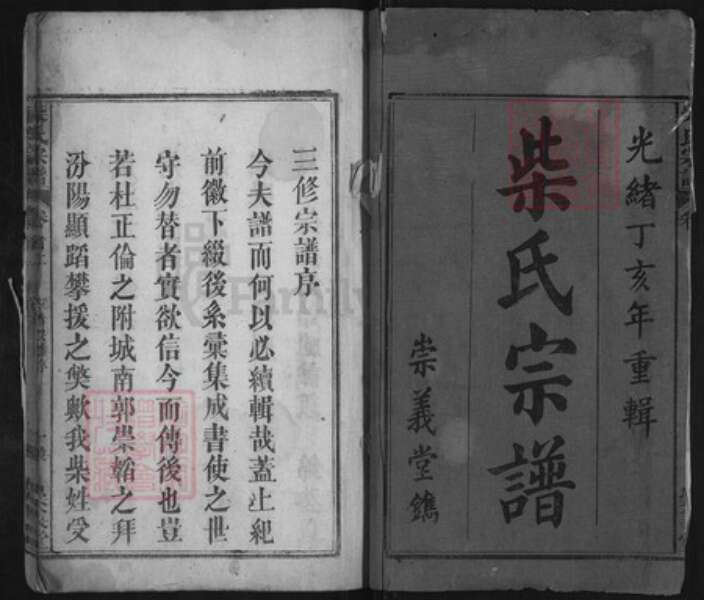 光緒丁亥年重輯
柴氏宗譜
崇義堂鐫
三修宗譜序
今夫譜而何以必續輯哉蓋上紀
前徽下綴後系彙集成書使之世
守勿替者實欲信今而傳後也豈
若杜正倫之附城南郭崇韜之拜
汾陽顯蹈攀援之獘歟我柴姓受